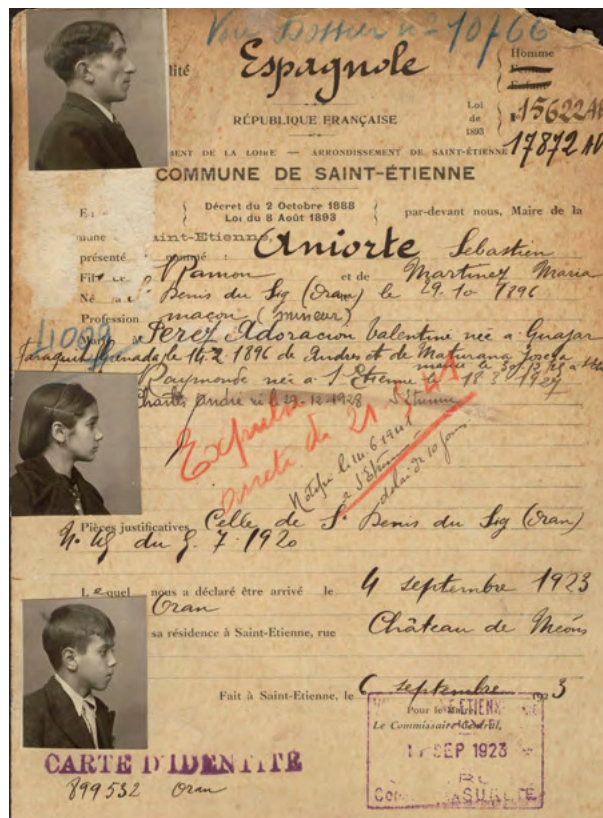 Voir Dossier n° 10766
lité Espagnole
Homme
RÉPUBLIQUE FRANÇAISE
Loi de 1893
15622 AV
17872 AV
MENT DE LA LOIRE — ARRONDISSEMENT DE SAINT-ÉTIENNE
COMMUNE DE SAINT-ÉTIENNE
Décret du 2 Octobre 1888
Loi du 8 Août 1893
par-devant nous, Maire de la
mune Saint-Etienne,
présenté nommé : Aniorte Sebastien
Fil de Ramon et de Martinez Maria
Né Denis du Sig (Oran) le 29-10 1896
Profession maçon (mineur)
4009
Perez Adoracion Valentine née a Guajar
Faraguit Grenada le 14.2 1896 de Andres et de Maturana Josefa
marié le
Raymonde née a S Etienne le 18.3.1927
Charles André né le 29-12-1928 S Etienne
Expulsé
arreté du 21
Notifié le 10.6 1941
a S Etienne
délai de 10 jours.
Pièces justificatives Celle de St Denis du Sig (Oran)
N. 45 du 5. 7. 1920
Lequel nous a déclaré être arrivé le 4 septembre 1923
Oran
sa résidence à Saint-Etienne, rue Château de Méons
Fait à Saint-Etienne, le 6 septembre 1923
Pour le Maire,
Le Commissaire Central,
11 SEP 1923
SURETÉ
CARTE D'IDENTITÉ
899532 Oran